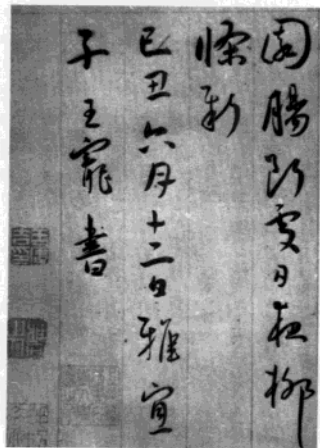 園腸断處日夜柳
條新
己丑六月十二日雅宜
子王寵書